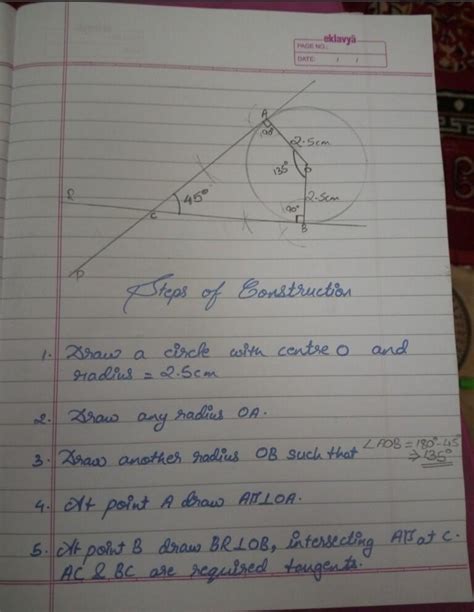 eklavyā
PAGE NO.:
DATE: / /
A
90°
2.5cm
135°
O
45°
2.5cm
R
C
90°
B
P
Steps of Construction
1. Draw a circle with centre O and
radius = 2.5cm
2. Draw any radius OA.
3. Draw another radius OB such that ∠AOB = 180°-45°
⇒ 135°
4. At point A draw AP⊥OA.
5. At point B draw BR⊥OB, intersecting AP at C.
AC & BC are required tangents.